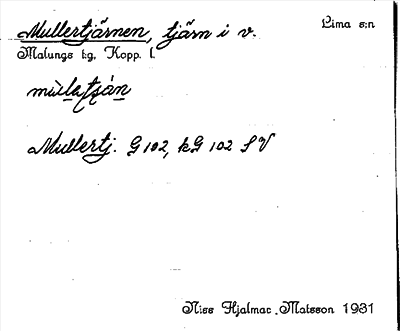 Mullertjärnen, tjärn i v. Lima s:n
Malungs tg, Kopp. l.
Mullertj. G 102, kG 102 SV
Niss Hjalmar Matsson 1931